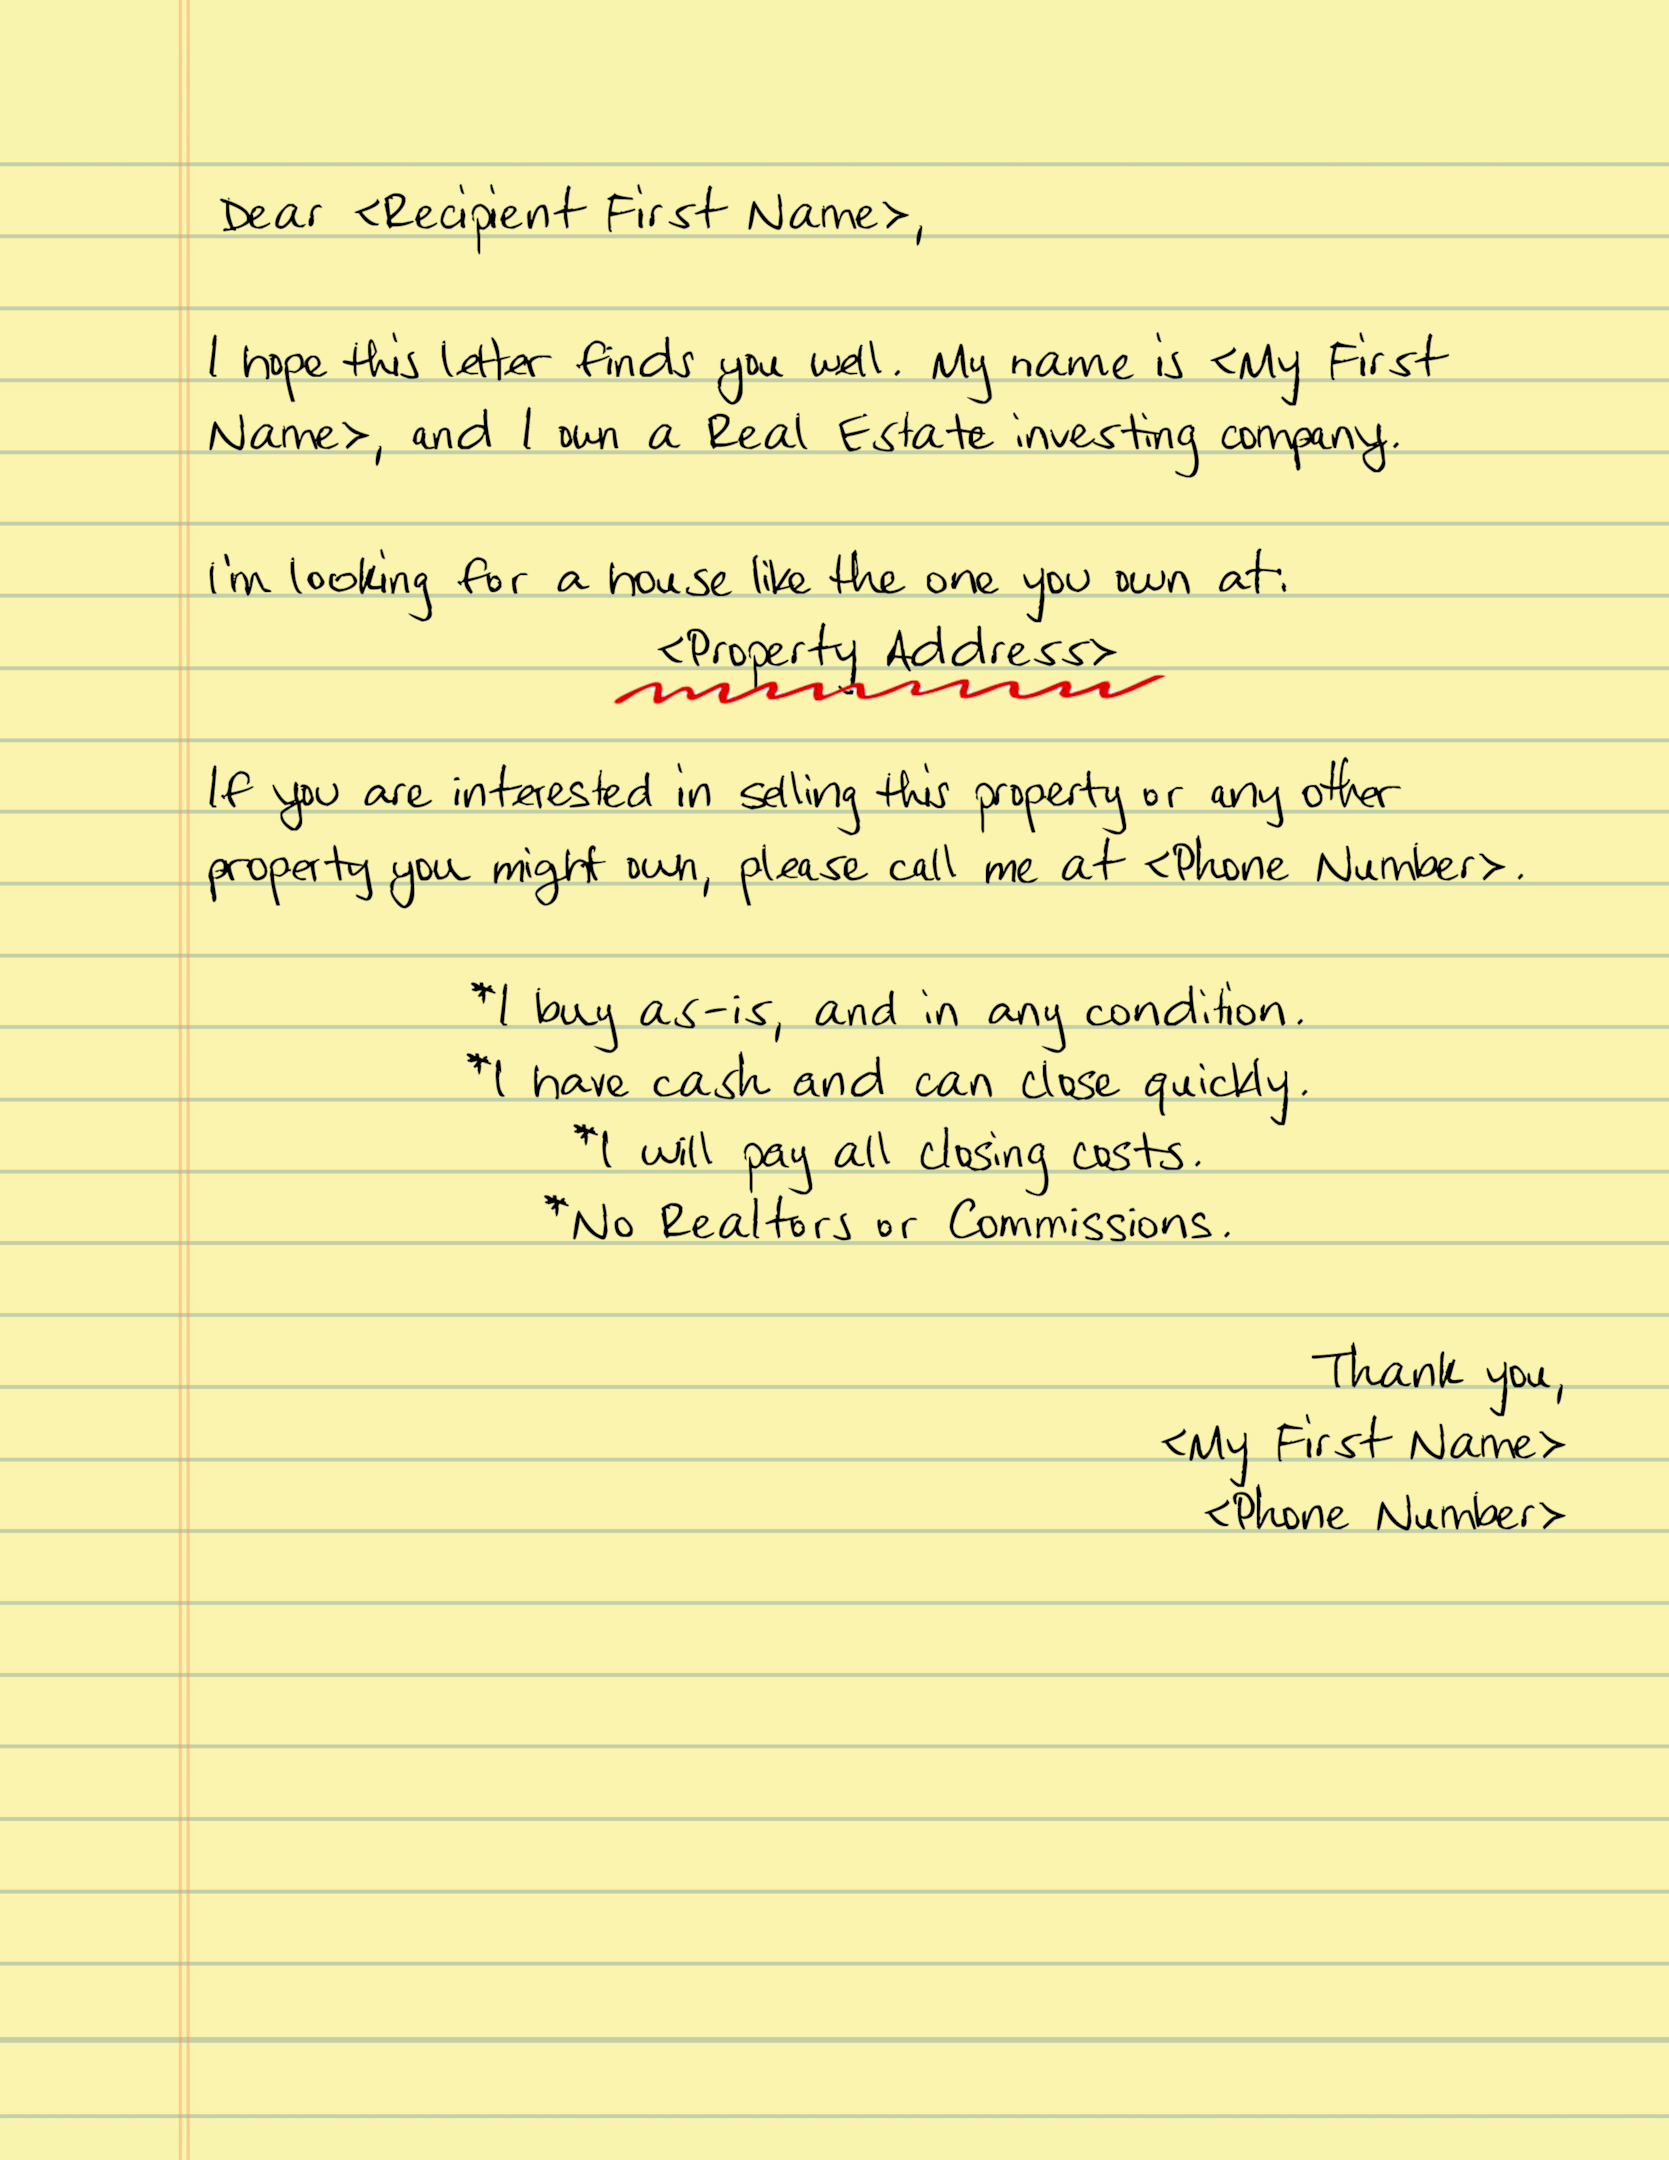 Dear <Recipient First Name>,
I hope this letter finds you well. My name is <My First
Name>, and I own a Real Estate investing company.
I'm looking for a house like the one you own at:
<Property Address>
If you are interested in selling this property or any other
property you might own, please call me at <Phone Number>.
*I buy as-is, and in any condition.
*I have cash and can close quickly.
*I will pay all closing costs.
*No Realtors or Commissions.
Thank you,
<My First Name>
<Phone Number>